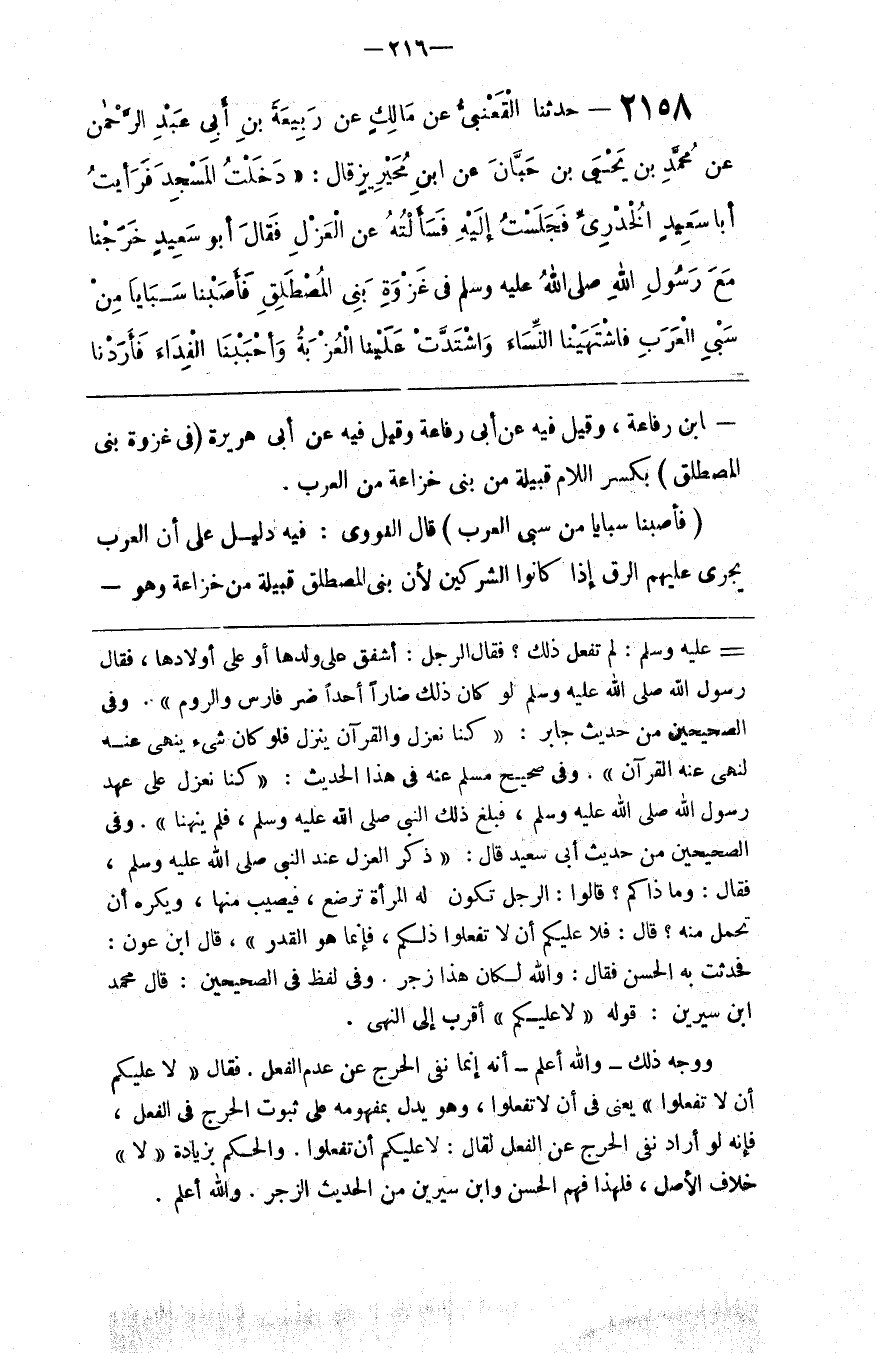 —٢١٦—
٢١٥٨ — حدثنا الْقَعْنَبِىُّ عن مَالِكٍ عن رَبِيعَةَ بنِ أَبِى عَبْدِ الرَّحْمٰن
عن مُحمَّدِ بن يَحْيَى بن حَبَّانَ عن ابنِ مُحَيْرِيزٍ قال : « دَخَلْتُ المَسْجِدَ فَرَأيتُ
أبا سَعِيدٍ الُخْدْرِىَّ فَجَلَسْتُ إِلَيْهِ فَسَأَلْتُهُ عن الْعَزْلِ فَقَالَ أبو سَعِيدٍ خَرَجْنا
مَعَ رَسُولِ اللهِ صلى اللهُ عليه وسلم فى غَزْوَةِ بَنِى المُصْطَلِقِ فَأَصَبْنا سَبَايا مِنْ
سَبْىِ الْعَرَبِ فاشْتَهَيْنا النِّسَاءَ وَاشْتَدَّتْ عَلَيْنا الْعُزْبَةُ وَأَحْبَبْنَا الفِدَاءَ فَأَرَدْنا
— ابن رفاعة ، وقيل فيه عن أبى رفاعة وقيل فيه عن أبى هريرة (فى غزوة بنى
المصطلق ) بكسر اللام قبيلة من بنى خزاعة من العرب .
( فأصبنا سبايا من سبى العرب ) قال النووى : فيه دليل على أن العرب
يجرى عليهم الرق إذا كانوا المشركين لأن بنى المصطلق قبيلة من خزاعة وهو —
= عليه وسلم : لم تفعل ذلك ؟ فقال الرجل : أشفق على ولدها أو على أولادها ، فقال
رسول الله صلى الله عليه وسلم لو كان ذلك ضاراً أحداً ضر فارس والروم » . وفى
الصحيحين من حديث جابر : « كنا نعزل والقرآن ينزل فلو كان شىء ينهى عنه
لنهى عنه القرآن » . وفى صحيح مسلم عنه فى هذا الحديث : « كنا نعزل على عهد
رسول الله صلى الله عليه وسلم ، فبلغ ذلك النبى صلى الله عليه وسلم ، فلم ينهنا » . وفى
الصحيحين من حديث أبى سعيد قال : « ذكر العزل عند النبى صلى الله عليه وسلم ،
فقال : وما ذاكم ؟ قالوا : الرجل تكون له المرأة ترضع ، فيصيب منها ، ويكره أن
تحمل منه ؟ قال : فلا عليكم أن لا تفعلوا ذلكم ، فإنما هو القدر » ، قال ابن عون :
فحدثت به الحسن فقال : والله لكان هذا زجر . وفى لفظ فى الصحيحين : قال محمد
ابن سيرين : قوله « لا عليكم » أقرب إلى النهى .
ووجه ذلك – والله أعلم – أنه إنما نفى الحرج عن عدم الفعل . فقال « لا عليكم
أن لا تفعلوا » يعنى فى أن لا تفعلوا ، وهو يدل بمفهومه على ثبوت الحرج فى الفعل ،
فإنه لو أراد نفى الحرج عن الفعل لقال : لا عليكم أن تفعلوا . والحكم بزيادة « لا »
خلاف الأصل ، فلهذا فهم الحسن وابن سيرين من الحديث الزجر . والله أعلم .